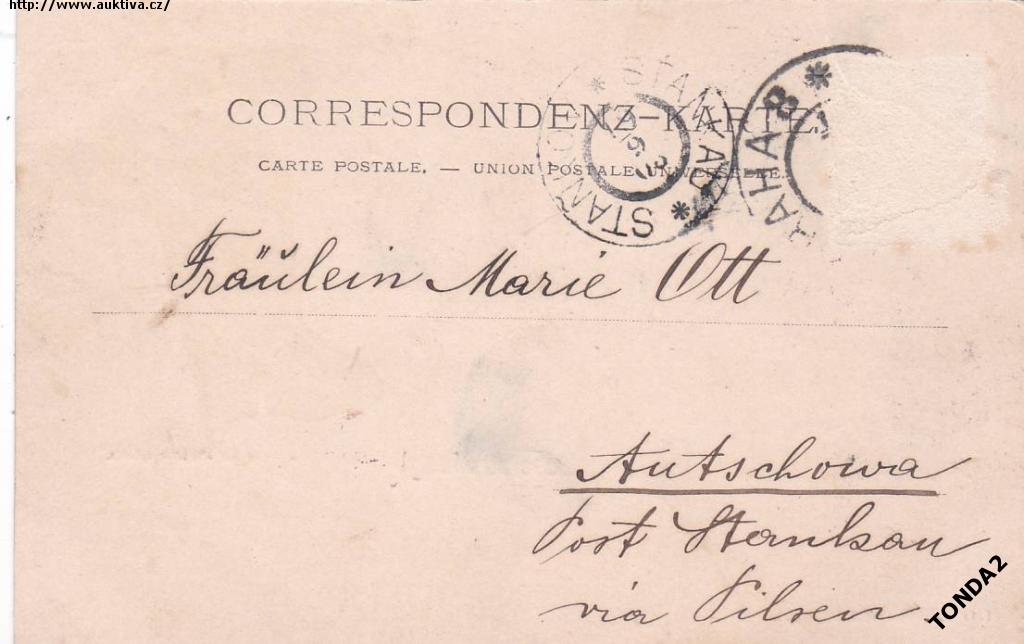 http://www.auktiva.cz/
CORRESPONDENZ-KARTE
CARTE POSTALE. — UNION POSTALE UNIVERSELLE.
STANKAU * STAŇKOV *
8 *
Fräulein Marie Ott
Autschowa
Post Stankau
via Pilsen
TONDA2